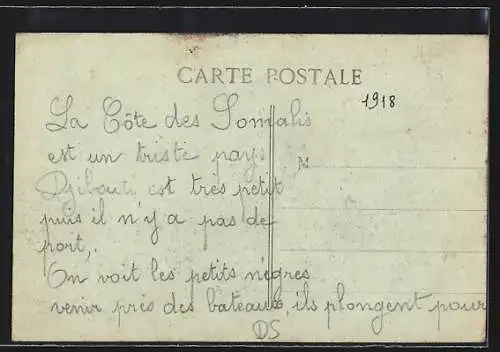 CARTE POSTALE
1918
La Côte des Somalis
est un triste pays
M
Djibouti est très petit
puis il n'y a pas de
port,.
On voit les petits nègres
venir près des bateaux, ils plongent pour
DS